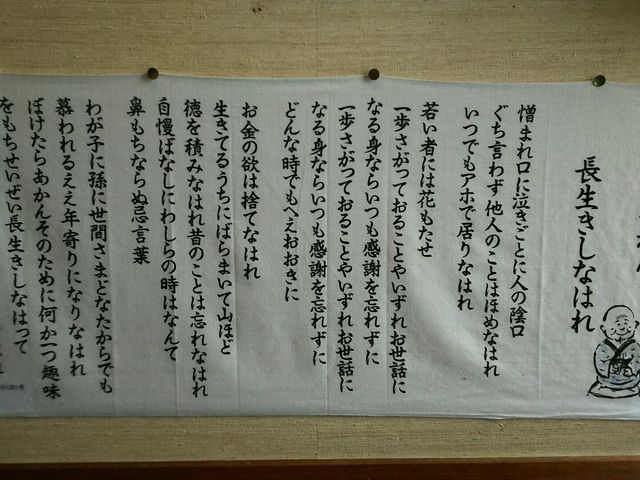 長生きしなはれ
憎まれ口に泣きごとに人の陰口
ぐち言わず 他人のことはほめなはれ
いつでもアホで居りなはれ
若い者には花もたせ
一歩さがっておることやいずれお世話に
なる身ならいつも感謝を忘れずに
一歩さがっておることやいずれお世話に
なる身ならいつも感謝を忘れずに
どんな時でもへえおおきに
お金の欲は捨てなはれ
生きてるうちにばらまいて山ほど
徳を積みなはれ昔のことは忘れなはれ
自慢ばなしにわしらの時はなんて
鼻もちならぬ忌言葉
わが子に孫に世間さまどなたからでも
慕われるええ年寄りになりなはれ
ぼけたらあかんそのために何か一つ趣味
をもちせいぜい長生きしなはって